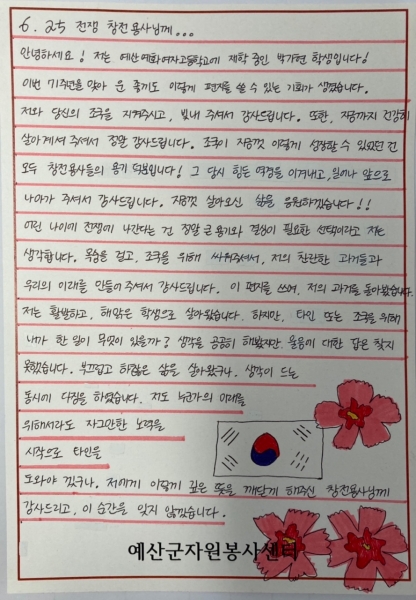 6. 25 전쟁 참전용사님께...
안녕하세요! 저는 예산예화여자고등학교에 재학 중인 학생입니다!
이번 71주년을 맞아 운 좋게도 이렇게 편지를 쓸 수 있는 기회가 생겼습니다.
저와 당신의 조국을 지켜주시고, 빛내 주셔서 감사드립니다. 또한, 지금까지 건강히
살아계셔 주셔서 정말 감사드립니다. 조국이 지금껏 이렇게 성장할 수 있었던 건
모두 참전용사들의 용기 덕분입니다! 그 당시 힘든 역경을 이겨내고, 일어나 앞으로
나아가 주셔서 감사드립니다. 지금껏 살아오신 삶을 응원하겠습니다!!
어린 나이에 전쟁에 나간다는 건 정말 큰 용기와 결심이 필요한 선택이라고 저는
생각합니다. 목숨을 걸고, 조국을 위해 싸워주셔서, 저의 찬란한 과거들과
우리의 미래를 만들어 주셔서 감사드립니다. 이 편지를 쓰며, 저의 과거를 돌아봤습니다.
저는 활발하고, 해맑은 학생으로 살아왔습니다. 하지만, 타인 또는 조국을 위해
내가 한 일이 무엇이 있을까? 생각을 곰곰히 해봤지만 물음에 대한 답은 찾지
못했습니다. 부끄럽고 삶을 살아왔구나. 생각이 드는
동시에 다짐을 하였습니다. 저도 누군가의 미래를
위해서라도 자그만한 노력을
시작으로 타인을
도와야 겠구나. 저에게 이렇게 깊은 뜻을 깨닫게 해주신 참전용사님께
감사드리고, 이 순간을 잊지 않겠습니다.
예산군자원봉사센터